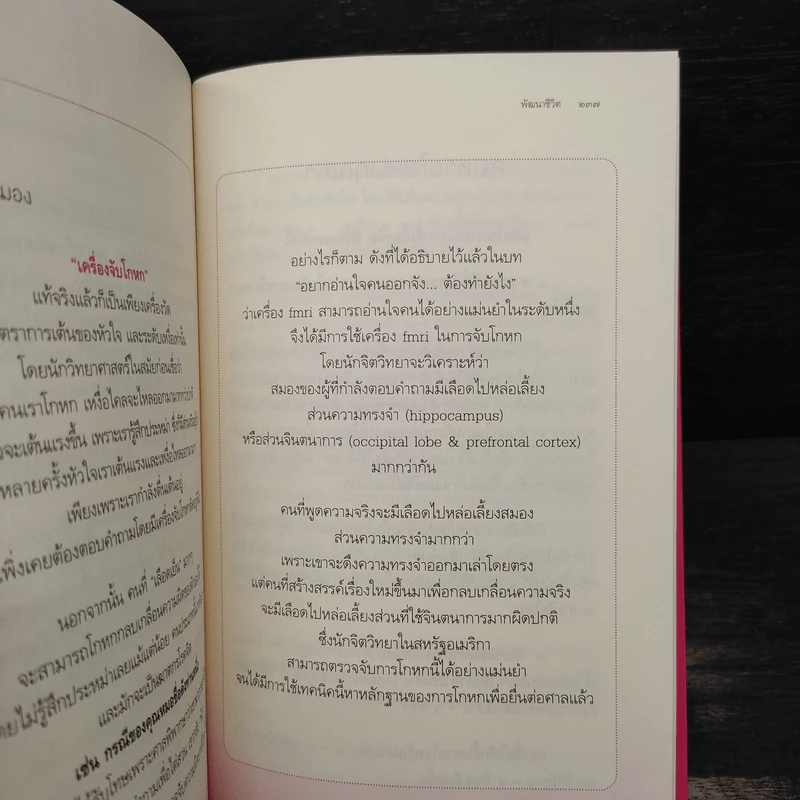 มอง
"เครื่องจับโกหก"
แท้จริงแล้วก็เป็นเพียงเครื่องวัด
ตราการเต้นของหัวใจ และระดับเหงื่อเท่านั้น
โดยนักวิทยาศาสตร์ในสมัยก่อนเชื่อว่า
คนเราโกหก เหงื่อไคลจะไหลออกมามากกว่าปกติ
จะเต้นแรงขึ้น เพราะเรารู้สึกประหม่า
หลายครั้งหัวใจเราเต้นแรงและเหงื่อไหลออกมา
เพียงเพราะเรากำลังตื่นเต้นอยู่
เพิ่งเคยต้องตอบคำถามโดยมีเครื่องจับโกหก
นอกจากนั้น คนที่ "เลือดเย็น" มากๆ
จะสามารถโกหกกลบเกลื่อนความผิดของตัวเอง
โดยไม่รู้สึกประหม่าเลยแม้แต่น้อย
และมักจะเป็นฆาตกรโรคจิต
เช่น กรณีของคุณหมอชื่อดังท่านหนึ่ง
พัฒนาชีวิต ๒๓๗
อย่างไรก็ตาม ดังที่ได้อธิบายไว้แล้วในบท
"อยากอ่านใจคนออกจัง... ต้องทำยังไง"
ว่าเครื่อง fmri สามารถอ่านใจคนได้อย่างแม่นยำในระดับหนึ่ง
จึงได้มีการใช้เครื่อง fmri ในการจับโกหก
โดยนักจิตวิทยาจะวิเคราะห์ว่า
สมองของผู้ที่กำลังตอบคำถามมีเลือดไปหล่อเลี้ยง
ส่วนความทรงจำ (hippocampus)
หรือส่วนจินตนาการ (occipital lobe & prefrontal cortex)
มากกว่ากัน
คนที่พูดความจริงจะมีเลือดไปหล่อเลี้ยงสมอง
ส่วนความทรงจำมากกว่า
เพราะเขาจะดึงความทรงจำออกมาเล่าโดยตรง
แต่คนที่สร้างสรรค์เรื่องใหม่ขึ้นมาเพื่อกลบเกลื่อนความจริง
จะมีเลือดไปหล่อเลี้ยงส่วนที่ใช้จินตนาการมากผิดปกติ
ซึ่งนักจิตวิทยาในสหรัฐอเมริกา
สามารถตรวจจับการโกหกนี้ได้อย่างแม่นยำ
จนได้มีการใช้เทคนิคนี้หาหลักฐานของการโกหกเพื่อยื่นต่อศาลแล้ว